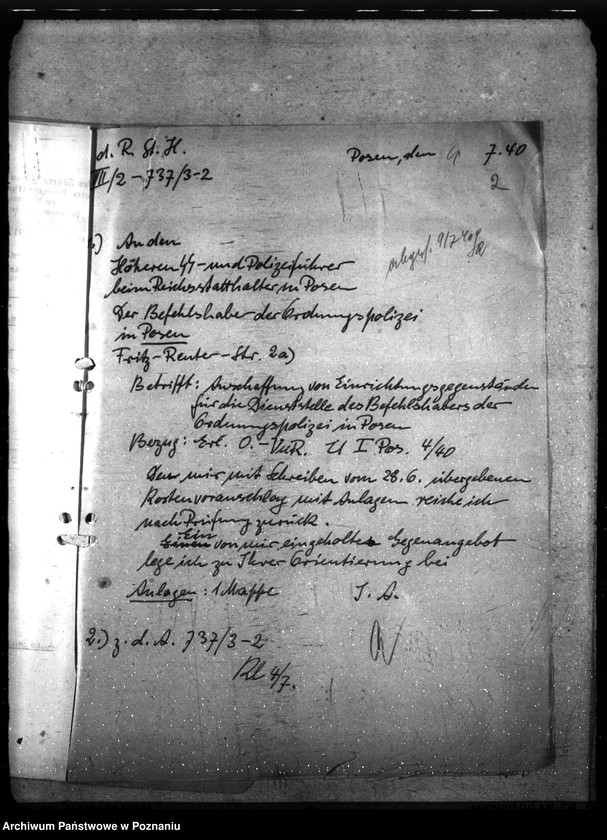 d. R. St. H.
III/2 – 737/3-2
Posen, den 4 7.40
2
abges. 9/7 40
1) An den
Höheren SS- und Polizeiführer
beim Reichsstatthalter in Posen
Der Befehlshaber der Ordnungspolizei
in Posen
Fritz-Reuter-Str. 2a)
Betrifft: Anschaffung von Einrichtungsgegenständen
für die Dienststelle des Befehlshabers der
Ordnungspolizei in Posen
Bezug: Erl. O.-VuR. U I Pos. 4/40
Den mir mit Schreiben vom 28.6. übergebenen
Kostenvoranschlag mit Anlagen reiche ich
nach Prüfung zurück.
Ein von mir eingeholtes Gegenangebot
lege ich zu Ihrer Orientierung bei
Anlagen: 1 Mappe
I. A.
2.) z. d. A. 737/3-2
4/7.
Archiwum Państwowe w Poznaniu